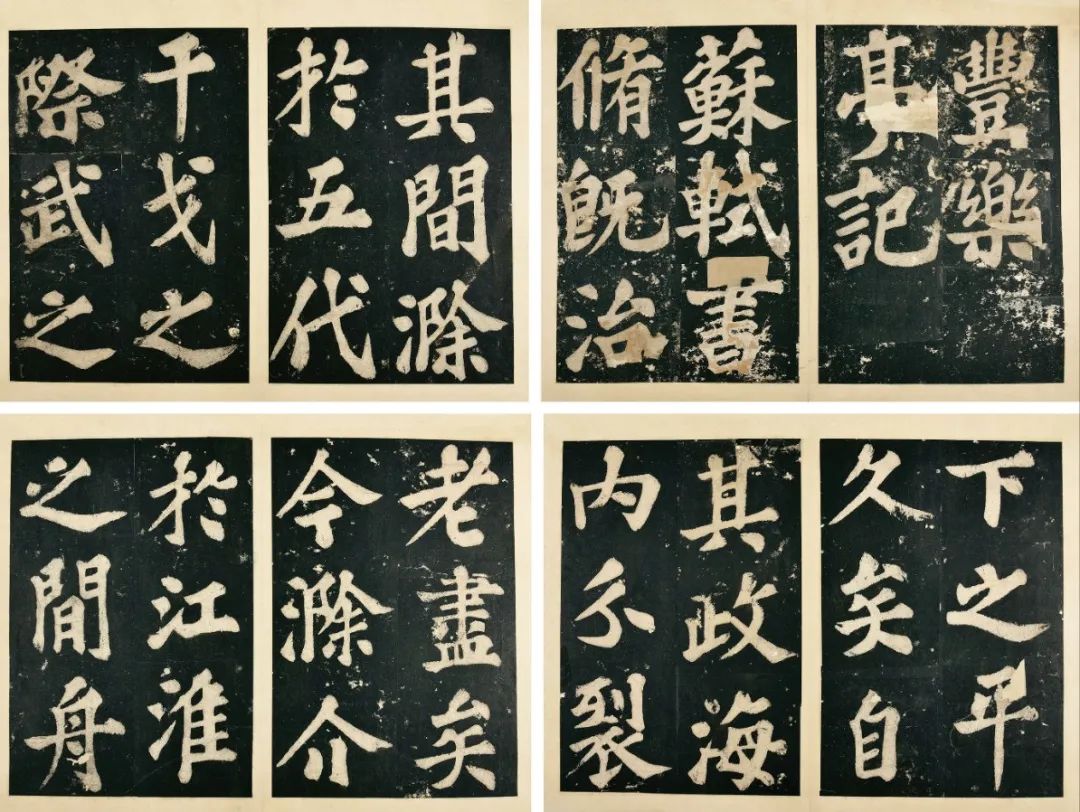 豐樂
亭記
蘇軾書
脩既治
其間滁
於五代
干戈之
際武之
下之平
久矣自
其政海
内分裂
老盡矣
今滁介
於江淮
之閒舟